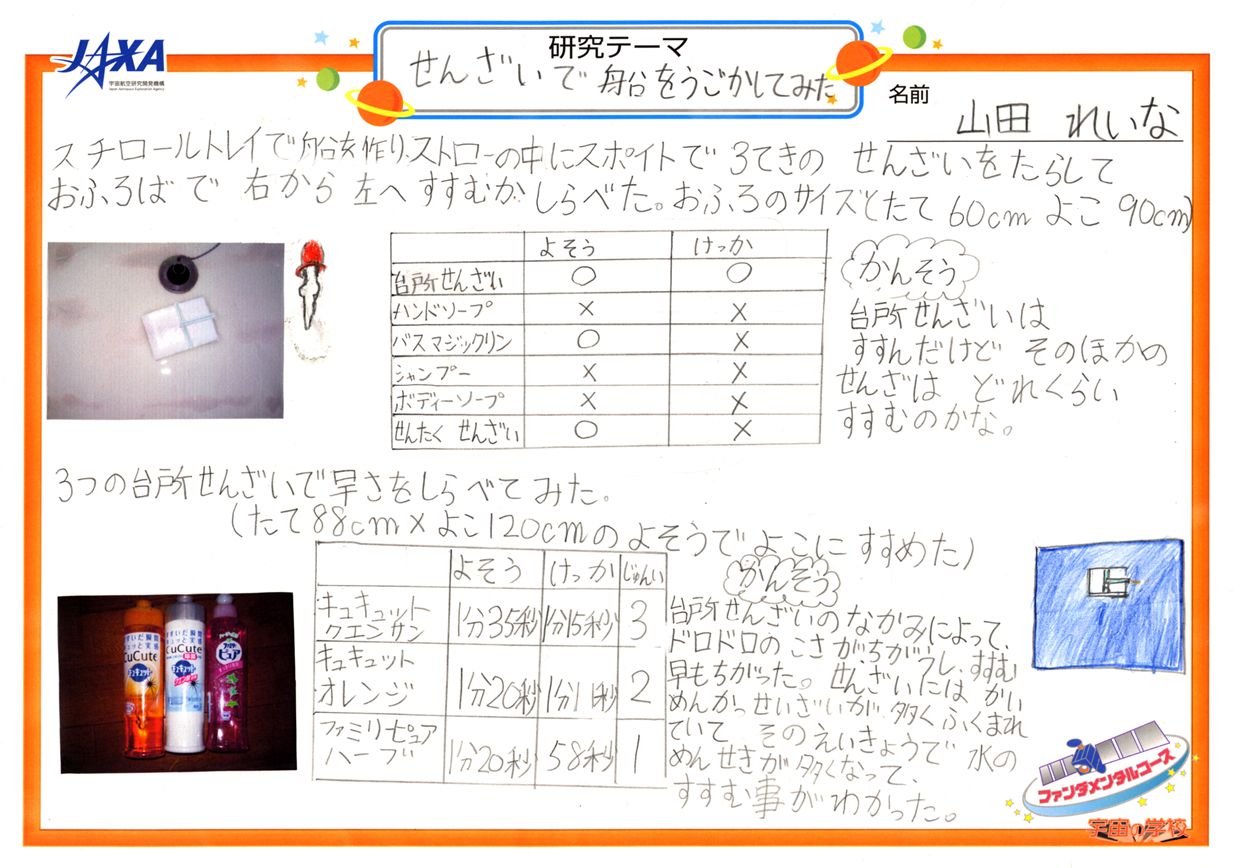 JAXA
宇宙航空研究開発機構
Japan Aerospace Exploration Agency
研究テーマ
せんざいで船をうごかしてみた
名前
山田 れいな
スチロールトレイで船を作り、ストローの中にスポイトで3てきの せんざいをたらして
おふろばで 右から 左へ すすむか しらべた。おふろのサイズ(たて60cm よこ 90cm)
よそう けっか
台所せんざい ○ ○
ハンドソープ × ×
バスマジックリン ○ ×
シャンプー × ×
ボディーソープ × ×
せんたく せんざい ○ ×
かんそう
台所せんざいは
すすんだけど そのほかの
せんざは どれくらい
すすむのかな。
3つの台所せんざいで早さをしらべてみた。
(たて88cm×よこ120cmの よそうで よこに すすめた)
よそう けっか じゅんい
キュキュット
クエンサン 1分35秒 1分15秒 3
キュキュット
オレンジ 1分20秒 1分1秒 2
ファミリーピュア
ハーブ 1分20秒 58秒 1
CuCute
キュキュット
CuCute
キュキュット
ピュア
かんそう
台所せんざいのなかみによって、
ドロドロのこさがちがい
すすむ
早もちがった。せんざいにはかい
めんかっせいざいが、多くふくまれ
ていて そのえいきょうで 水の
めんせきが多くなって、
すすむ事がわかった。
ファンダメンタルコース
宇宙の学校